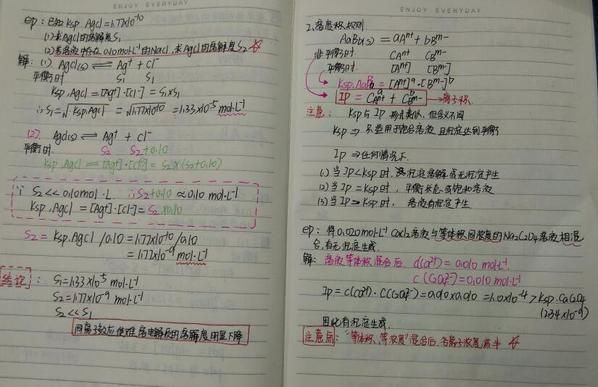 ENJOY EVERYDAY
ep: 已知 Ksp.AgCl=1.77x10⁻¹⁰
(1) 求AgCl的溶解度S₁
(2) 若溶液中存在0.10mol·L⁻¹的NaCl, 求AgCl的溶解度S₂
解: (1) AgCl(s) ⇌ Ag⁺ + Cl⁻
平衡时 S₁ S₁
Ksp.AgCl=[Ag⁺]·[Cl⁻]=S₁xS₁
∴S₁=√Ksp.AgCl =√1.77x10⁻¹⁰ =1.33x10⁻⁵ mol·L⁻¹
(2). AgCl(s) ⇌ Ag⁺ + Cl⁻
平衡时 S₂ S₂+0.10
Ksp.AgCl=[Ag⁺]·[Cl⁻]=S₂x(S₂+0.10)
∵ S₂<<0.10mol·L ∴S₂+0.10≈0.10 mol·L⁻¹
Ksp.AgCl=[Ag⁺]·[Cl⁻]=S₂x0.10
S₂=Ksp.AgCl/0.10=1.77x10⁻¹⁰/0.10
=1.77x10⁻⁹ mol·L⁻¹
结论: S₁=1.33x10⁻⁵ mol·L⁻¹
S₂=1.77x10⁻⁹ mol·L⁻¹
S₂<<S₁
同离子效应使难溶电解质的溶解度明显下降
ENJOY EVERYDAY
2. 溶度积规则
AaBb(s) = aAⁿ⁺ + bBᵐ⁻
非平衡时 CAⁿ⁺ CBᵐ⁻
平衡时 [Aⁿ⁺] [Bᵐ⁻]
Ksp.AaBb=[Aⁿ⁺]ᵃ·[Bᵐ⁻]ᵇ
Ip = CᵃAⁿ⁺ + CᵇBᵐ⁻ →离子积
注意: Ksp与Ip 形式类似, 但含义不同
Ksp⇒ 只适用于饱和溶液 且沉淀达到平衡
Ip⇒任何情况下.
(1) 当Ip<Ksp时, 沉淀溶解 无沉淀产生
(2) 当Ip=Ksp时, 平衡状态 饱和溶液
(3) 当Ip>Ksp时, 溶液有沉淀产生
ep: 将0.020mol·L⁻¹ CaCl₂溶液与等体积同浓度的Na₂C₂O₄溶液相混
合, 有无沉淀生成.
解: 溶液等体积混合后 c(Ca²⁺)=0.010 mol·L⁻¹
c(C₂O₄²⁻)=0.010 mol·L⁻¹
Ip=c(Ca²⁺)·c(C₂O₄²⁻)=0.010x0.010=1.0x10⁻⁴>Ksp.CaC₂O₄
(2.34x10⁻⁹)
因此有沉淀生成.
注意点: "等体积、等浓度"混合后, 各离子浓度减半